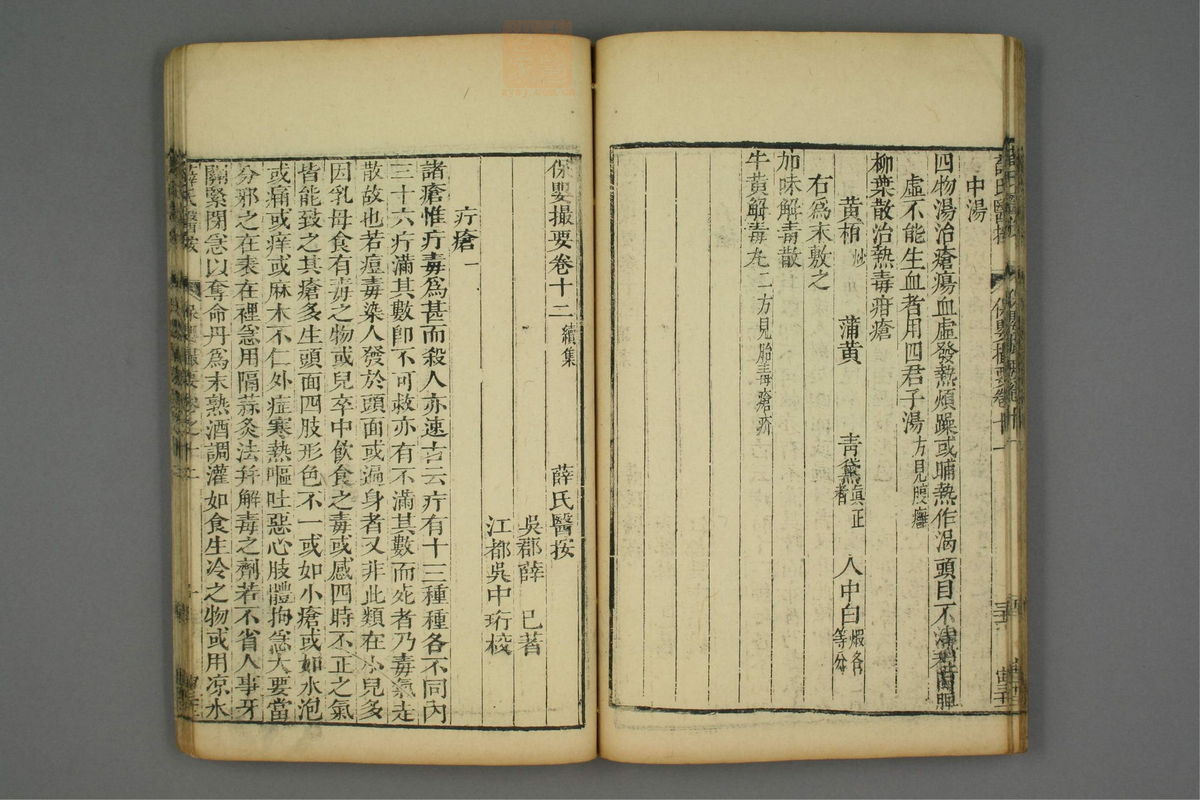 中湯
四物湯治瘡瘍血虛發熱煩躁或晡熱作渴頭目不
虛不能生血者用四君子湯方見腹癰
柳葉散治熱毒疳瘡
黃栢炒 蒲黃 青黛真正者 人中白煆各等分
右爲末敷之
加味解毒散
牛黃解毒丸二方見胎毒瘡疥
保嬰撮要卷十二續集 薛氏醫按
吳郡薛 已著
江都吳中珩校
疔瘡一
諸瘡惟疔毒爲甚而殺人亦速古云疔有十三種種各不同內
三十六疔滿其數卽不可救亦有不滿其數而死者乃毒氣走
散故也若痘毒染人發於頭面或遍身者又非此類在小兒多
因乳母食有毒之物或兒卒中飲食之毒或感四時不正之氣
皆能致之其瘡多生頭面四肢形色不一或如小瘡或如水泡
或痛或痒或麻木不仁外症寒熱嘔吐惡心肢體拘急大要當
分邪之在表在裡急用隔蒜灸法幷解毒之劑若不省人事牙
關緊閉急以奪命丹爲末熟酒調灌如食生冷之物或用凉水